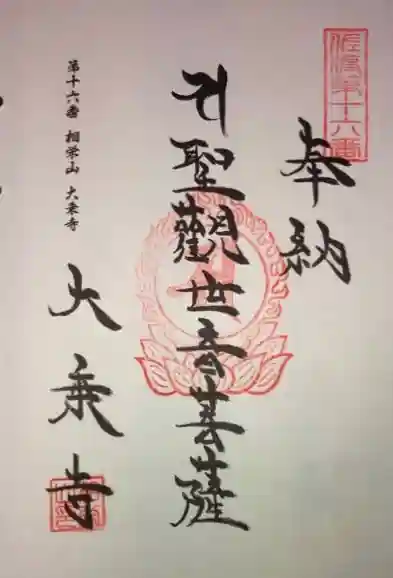 佐渡第十六番
奉納
聖観世音菩薩
大乗寺
第十六番 相栄山 大乗寺